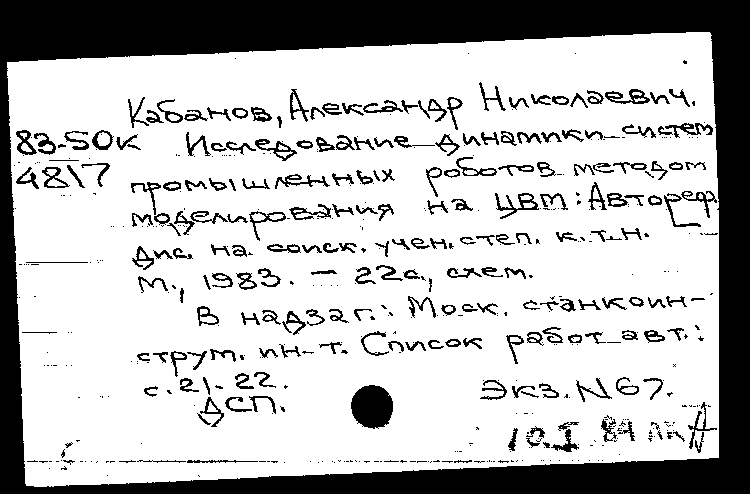 Кабанов, Александр Николаевич.
83-50к Исследование динамики систем
4817 промышленных роботов методом
моделирования на ЦВМ: Автореф
дис. на соиск. учен. степ. к.т.н.
М., 1983. - 22с., схем.
В надзаг.: Моск. станкоин-
струм. ин-т. Список работ авт.:
с. 21-22.
Экз. N67.
ДСП.
10.I 84